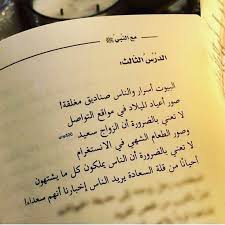 مع النبي ﷺ
الدَّرْسُ الثَّالث:
البيوت أسرار والناس صناديق مغلقة!
صور أعياد الميلاد في مواقع التواصل
لا تعني بالضرورة أن الزواج سعيد
وصور الطعام الشهي في الانستغرام
لا تعني بالضرورة أن الناس يملكون كل ما يشتهون
أحيانًا من قلة السعادة يريد الناس إخبارنا أنهم سعداء!